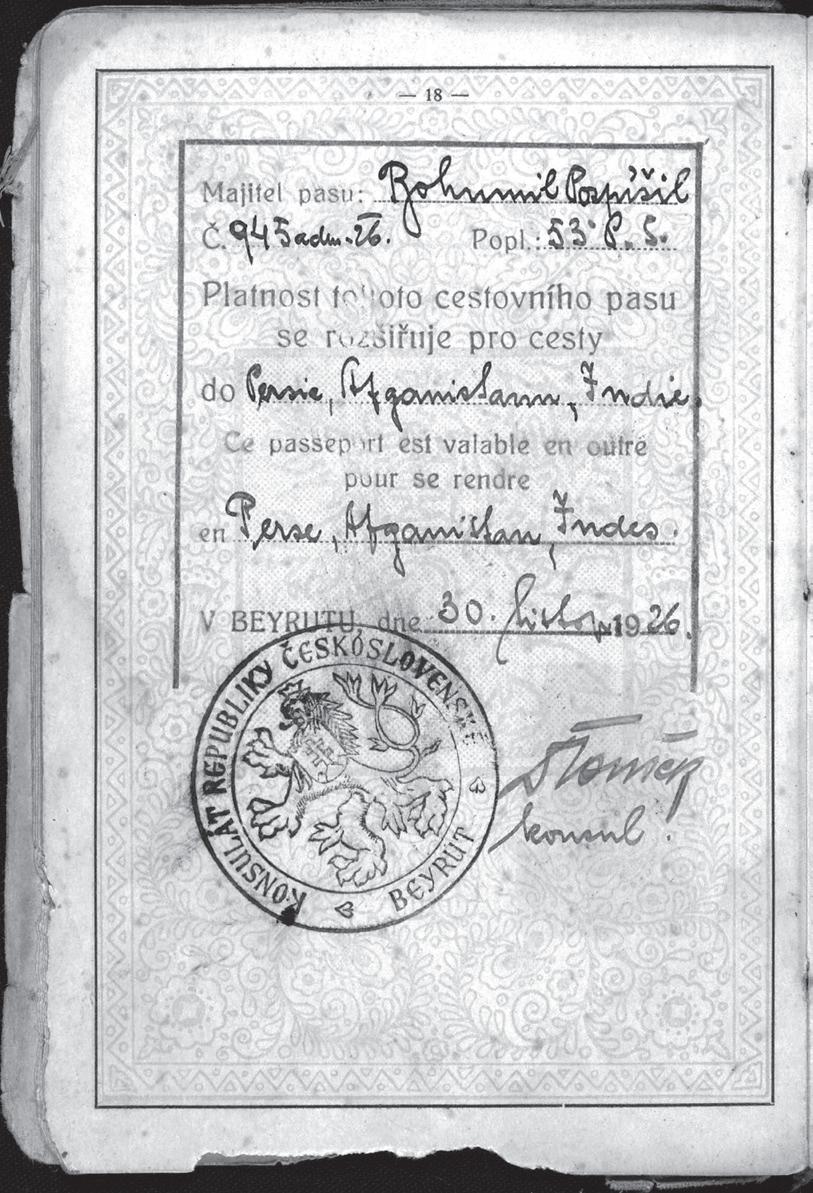 — 18 —
Majitel pasu: Bohumil Pospíšil
Č. 945 adm. 26. Popl.: 53 P. S.
Platnost tohoto cestovního pasu
se rozšiřuje pro cesty
do Persie, Afganistanu, Indie.
Ce passeport est valable en outre
pour se rendre
en Perse, Afganistan, Indes.
V BEYRUTU, dne 30. listop. 1926.
KONSULÁT REPUBLIKY ČESKOSLOVENSKÉ
BEYRUT
konsul.